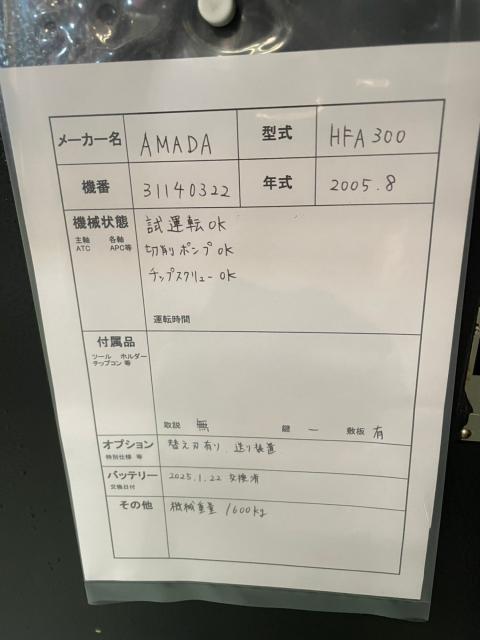 メーカー名 AMADA 型式 HFA300
機番 31140322 年式 2005.8
機械状態 試運転OK
主軸 各軸
ATC APC等
切削ポンプOK
チップスクリューOK
運転時間
付属品
ツール ホルダー
チップコン 等
取説 無 鍵 ー 敷板 有
オプション 替え刃有り、送り装置
特別仕様 等
バッテリー 2025.1.22 交換済
交換日付
その他 機械重量 1600kg